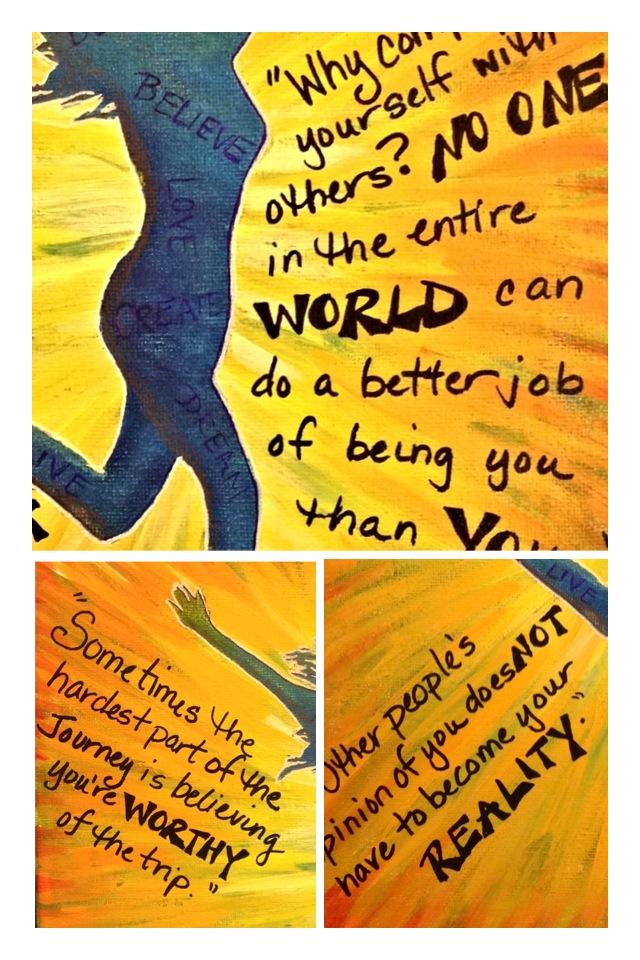 BELIEVE
LOVE
CREATE
DREAM
"Why
yourself with
others? NO ONE
in the entire
WORLD can
do a better job
of being you
than You
"Sometimes the
hardest part of the
Journey is believing
you're WORTHY
of the trip."
LIVE
Other people's
pinion of you does NOT
have to become your
REALITY."